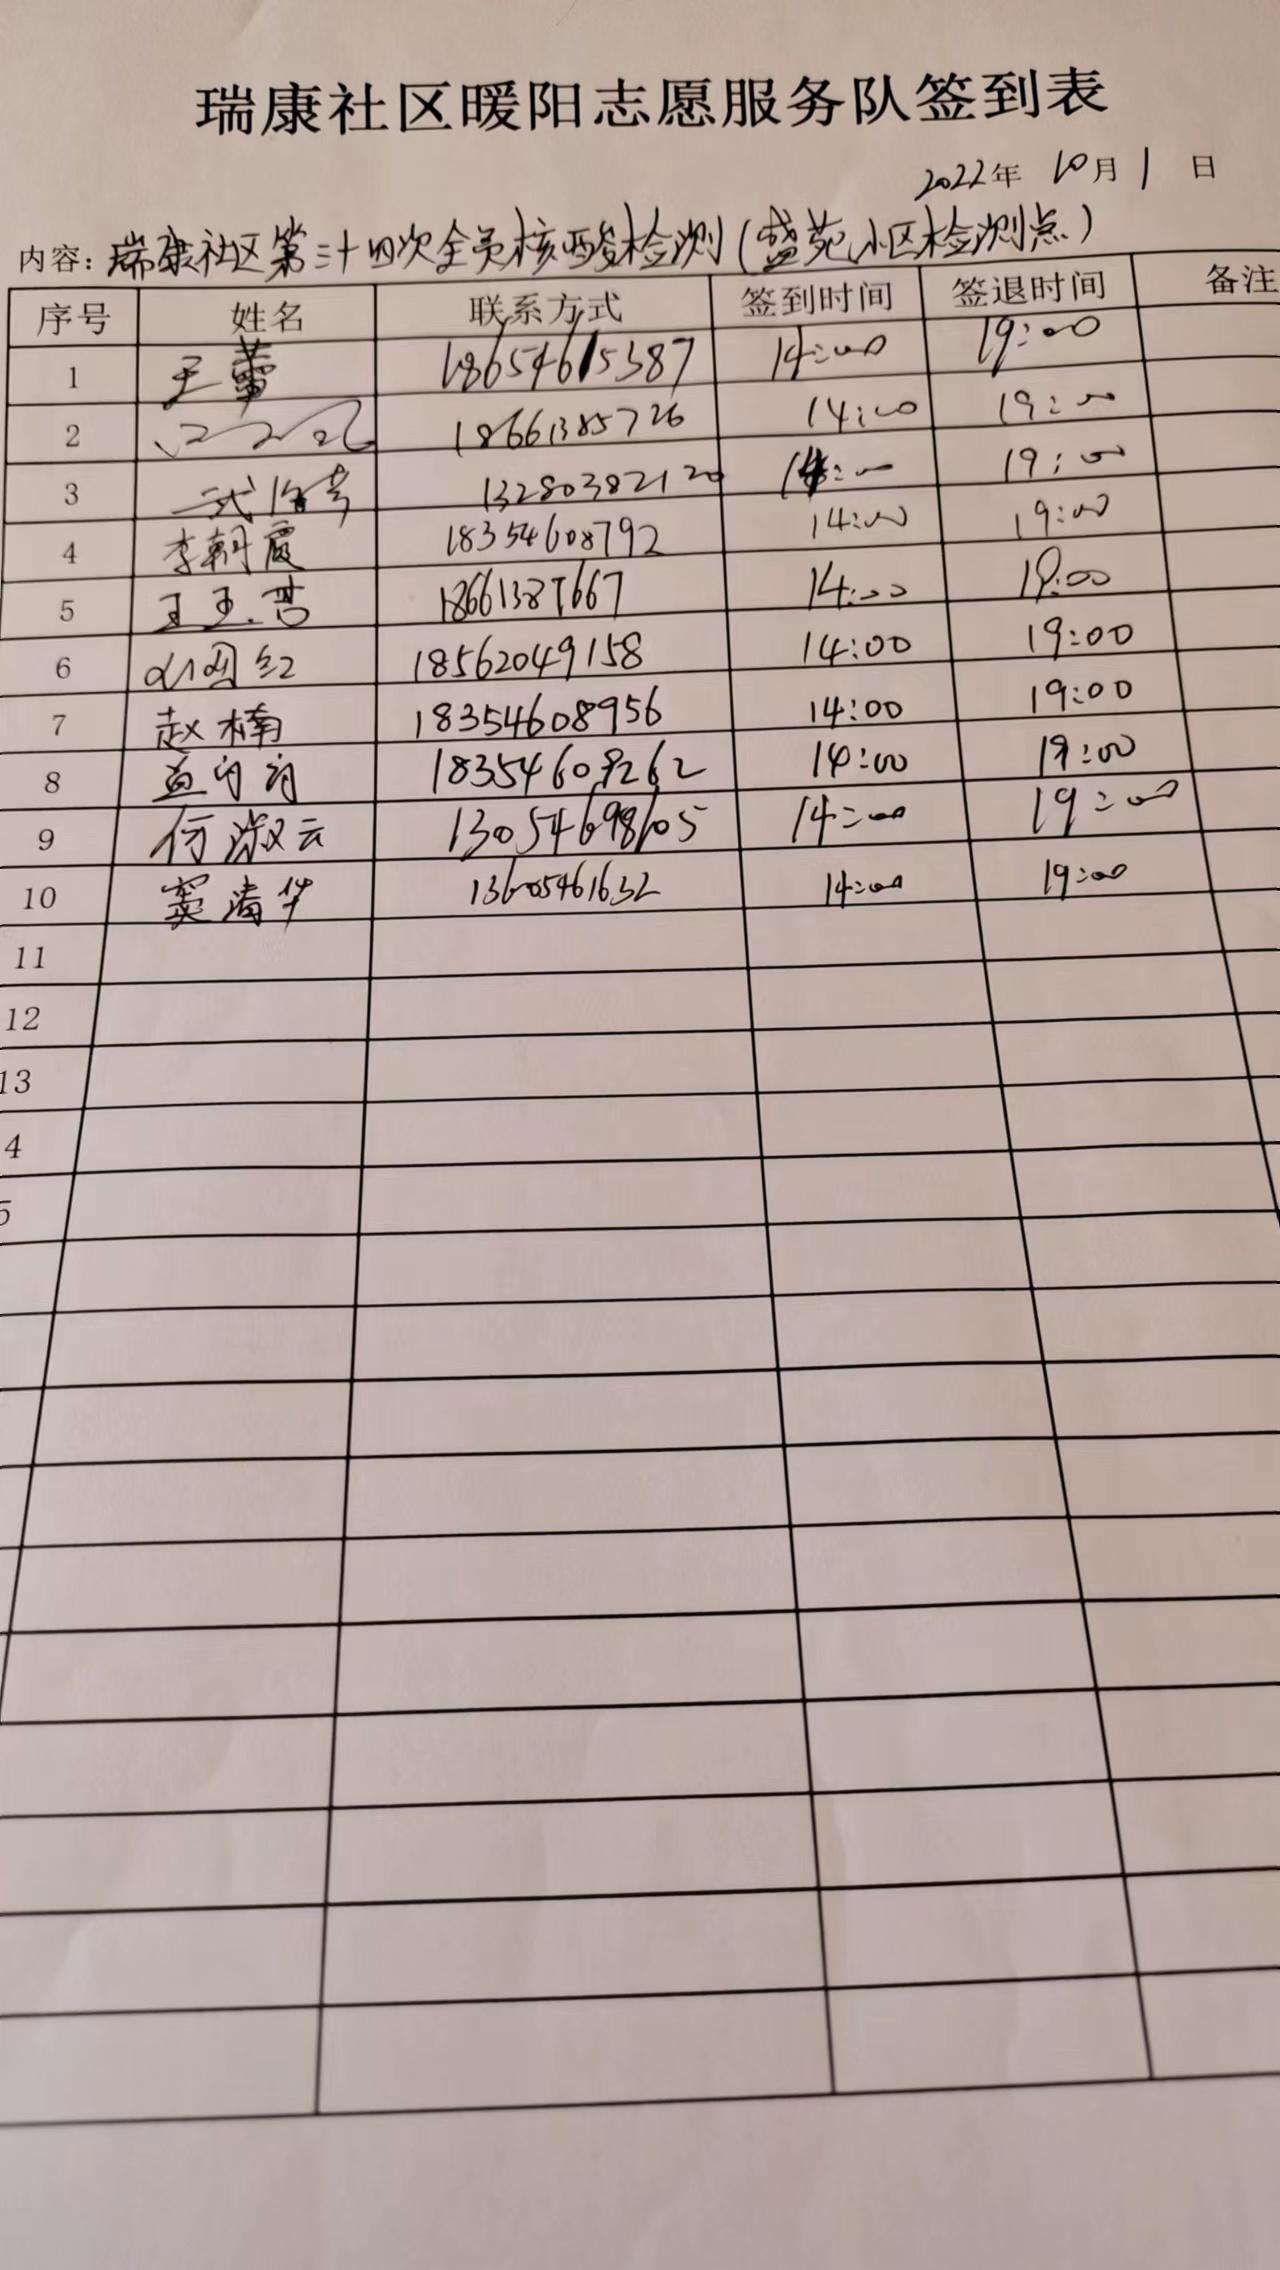 瑞康社区暖阳志愿服务队签到表
2022年 10月 1 日
内容：瑞康社区第三十四次全员核酸检测（盛苑小区检测点）
序号 姓名 联系方式 签到时间 签退时间 备注
1 王蕾 18654615387 14:00 19:00
2 18661385726 14:00 19:00
3 13280382120 14:00 19:00
4 李朝霞 18354608792 14:00 19:00
5 14:00 19:00
6 18562049158 14:00 19:00
7 赵楠 18354608956 14:00 19:00
8 14:00 19:00
9 何淑云 14:00 19:00
10 窦清华 13605461632 14:00 19:00
11
12
13
4
5